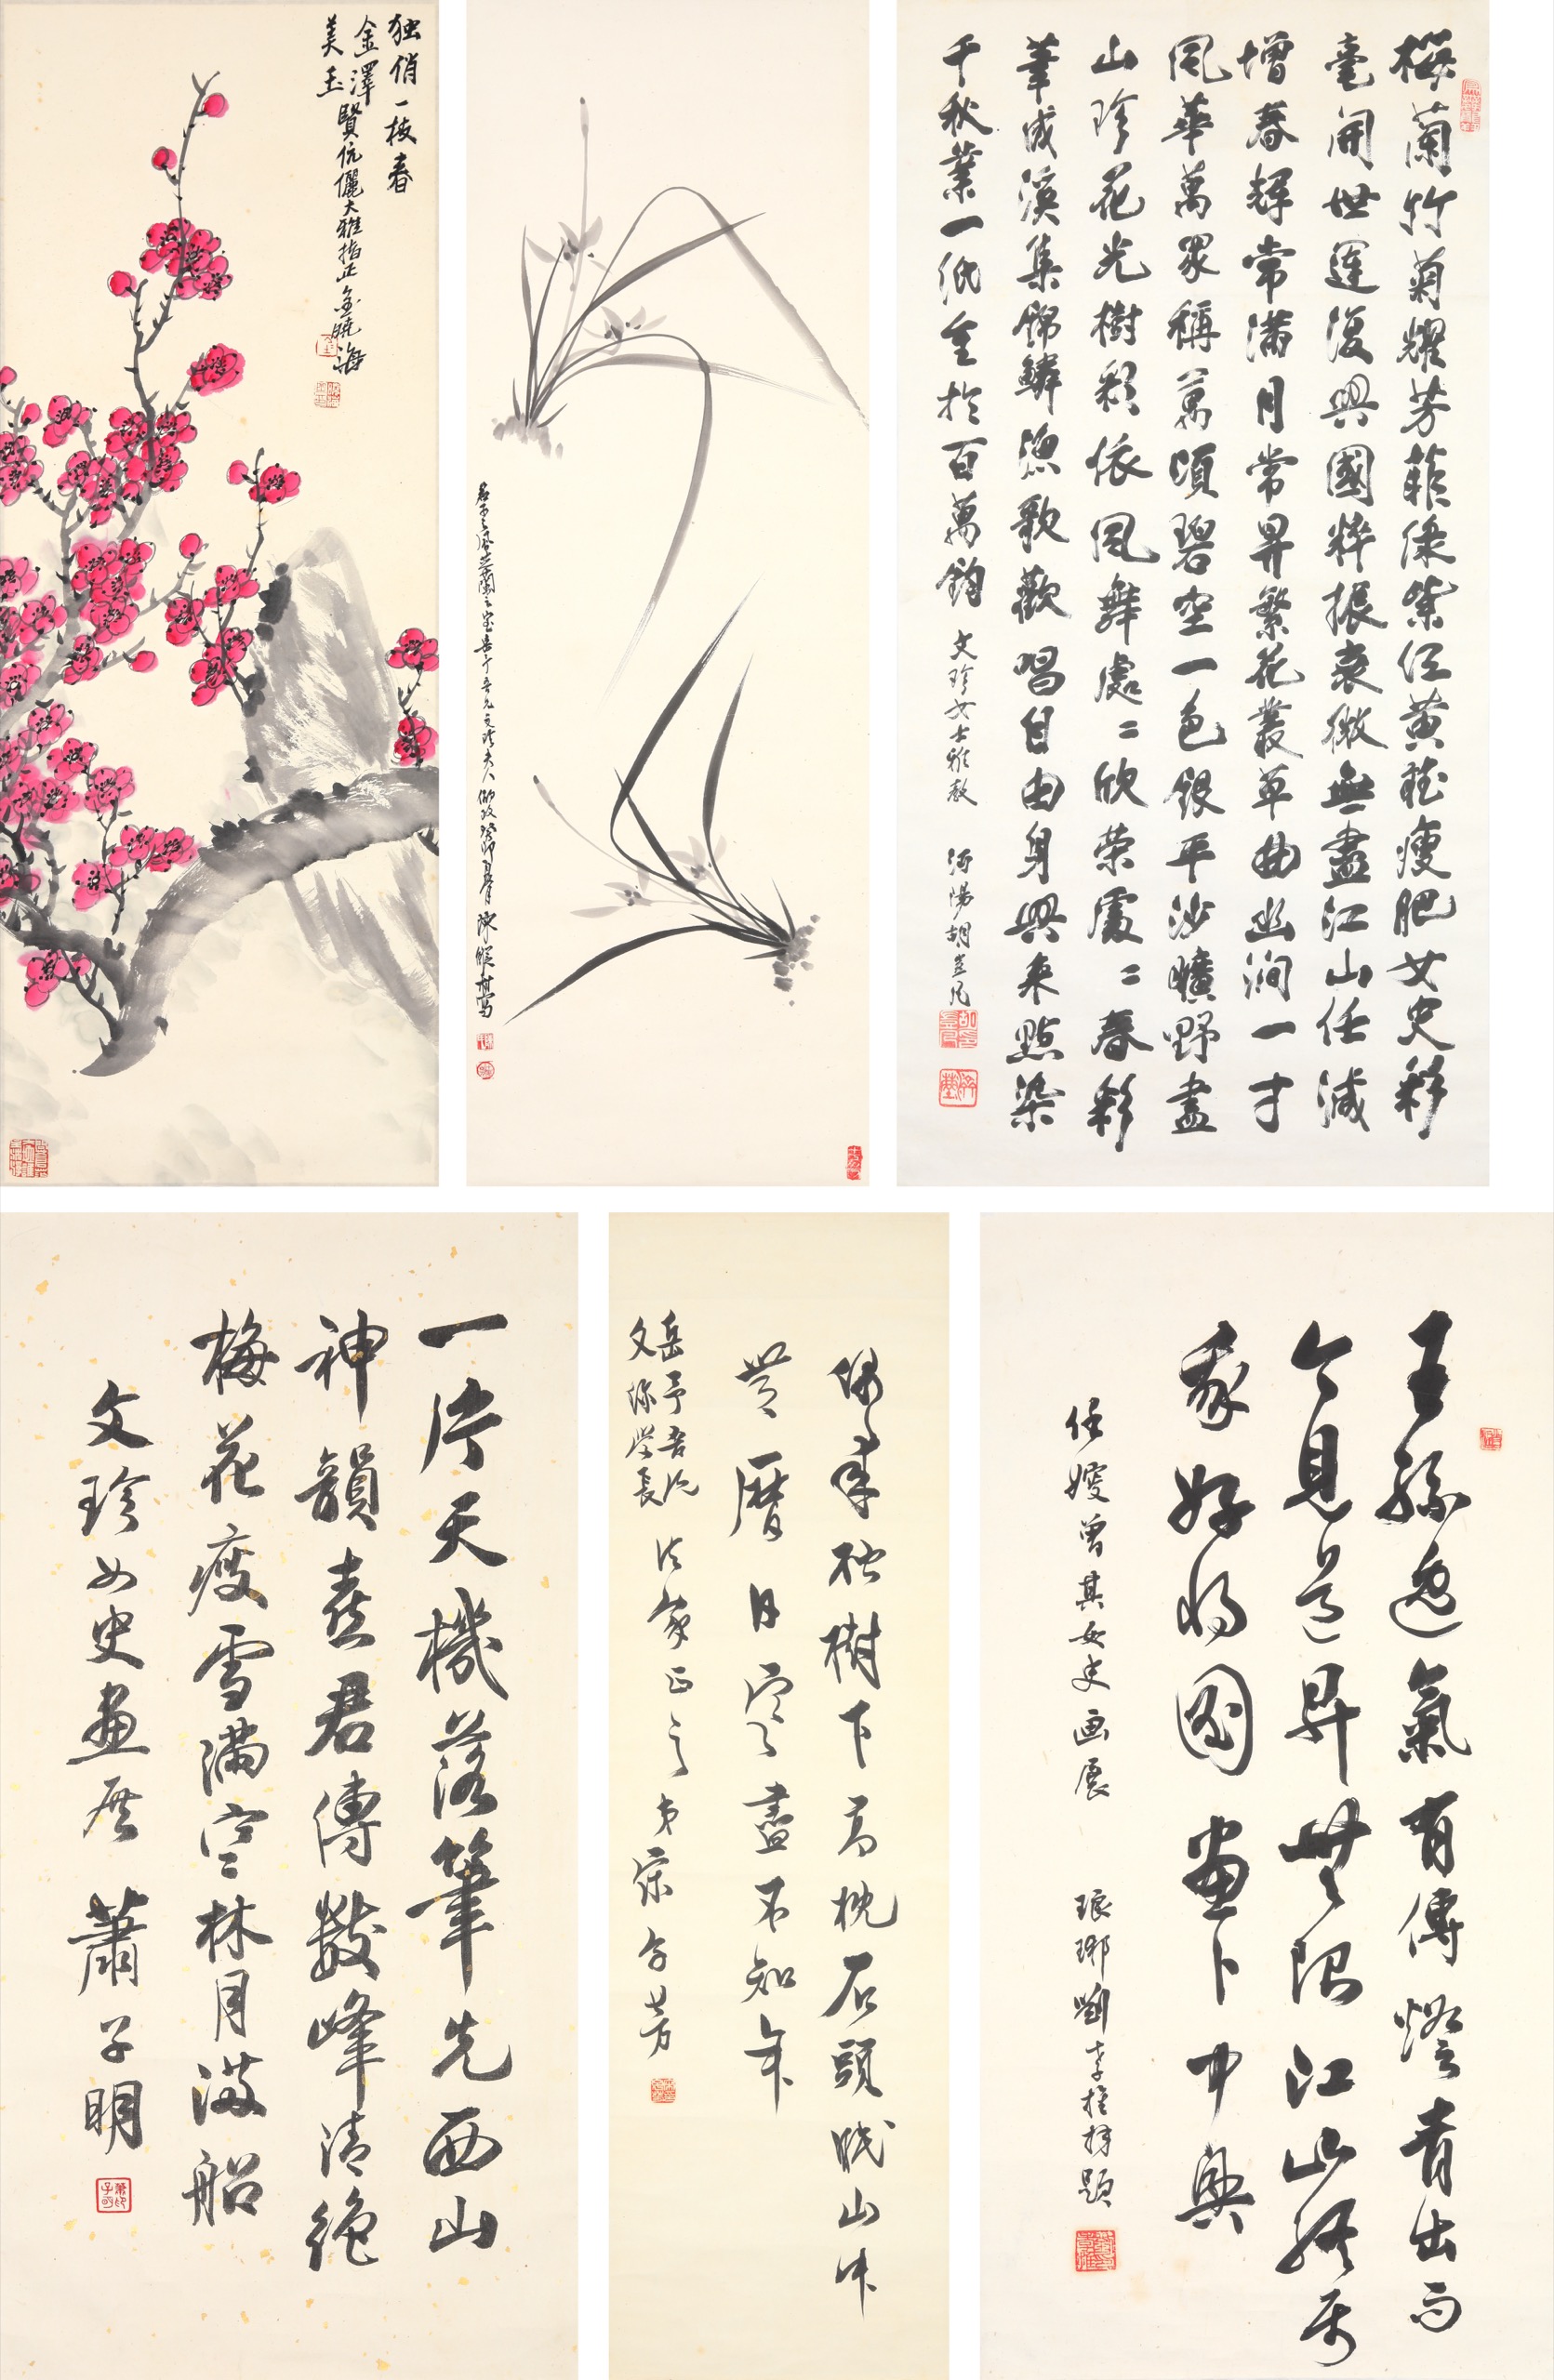 独俏一枝春
金澤賢伉儷大雅指正 金曉海
美玉
君子之風
梅蘭竹菊耀芳菲綠紫紅黃競瘦肥女史彩
毫開世運復興國粹振衰微無盡江山任減
增春輝常滿月常昇繁花叢草曲幽澗一寸
風華萬眾稱萬頃碧空一色銀平沙曠野盡
山珍花光樹影依風舞處二欣榮處二春彩
筆成溪集錦鱗漁歌歡唱自由身興來點染
千秋業一紙重於百萬鈞 文珍女士雅教
一片天機落筆先西山
神韻喜君傳數峰清絕
梅花瘦雪滿空林月滿船
文珍女史畫展 蕭子明
偶來松樹下高枕石頭眠山中
無曆日寒盡不知年
岳予吾兄
文珍學長 法家正之
王孫逸氣有傳燈青出而
今見道昇無限江山
家好將圖畫卜中興
任嫂曾其女史画展 琅琊劉孝推拜題